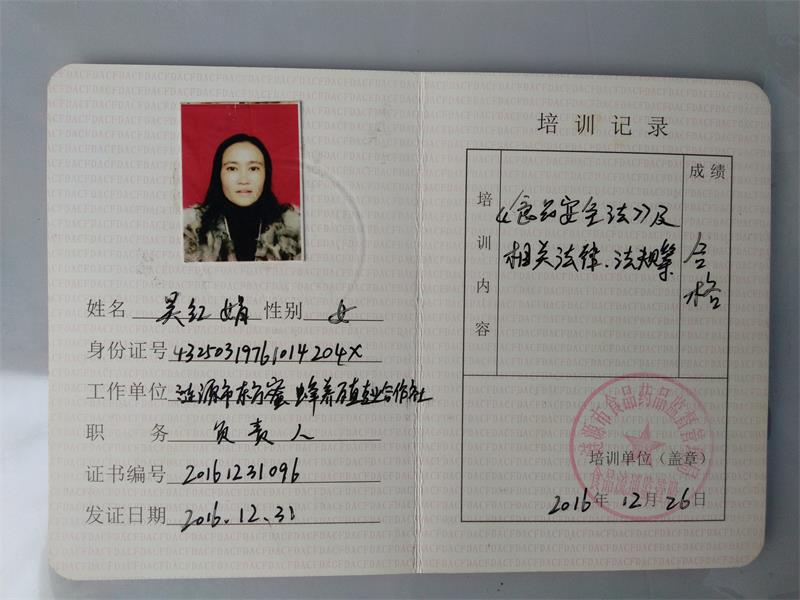 姓名 吴红娟 性别 女
身份证号 43250319761014204X
工作单位 涟源市东方蜜蜂养殖专业合作社
职 务 负责人
证书编号 20161231096
发证日期 2016.12.31
培训记录
培训内容
《食品安全法》及
相关法律、法规等
成绩
合格
涟源市食品药品监督管理局
食品流通监管股
培训单位（盖章）
2016年12月26日